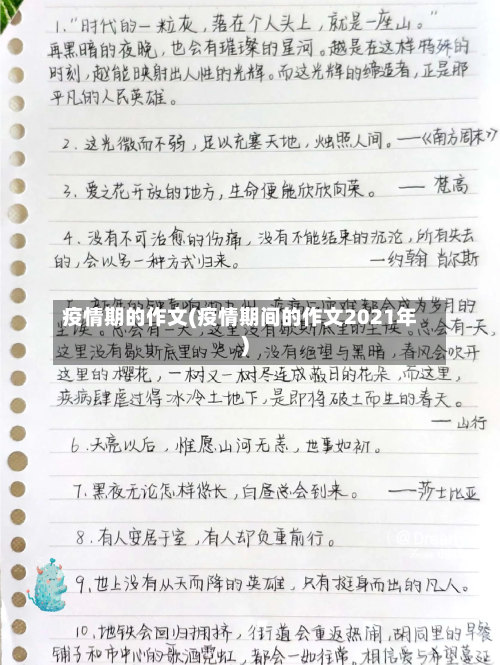 1."时代的一粒灰，落在个人头上，就是一座山。"
再黑暗的夜晚，也会有璀璨的星河。越是在这样特殊的
时刻，越能映射出人性的光辉。而这光辉的缔造者，正是那
平凡的人民英雄。
2. 这光微而不弱，足以充塞天地，烛照人间。——《南方周末》
3. 爱之花开放的地方，生命便能欣欣向荣。——梵高
4. 没有不可治愈的伤痛，没有不能结束的沉沦，所有失去
的，会以另一种方式归来。——约翰 肖尔斯
疫情期的作文(疫情期间的作文2021年
)
总会有一天，
这里没有歇斯底里的哭喊，没有绝望与黑暗，春风会吹开
这里的樱花，一树又一树尽连成蔽日的花朵，而这里，
疾病肆虐过得冰冷土地下，是即将破土而生的春天。
——山行
6. 天亮以后，惟愿山河无恙，世事如初。
7. 黑夜无论怎样悠长，白昼总会到来。——莎士比亚
8. 有人安居于室，有人却负重前行。
9. 世上没有从天而降的英雄，只有挺身而出的凡人。
10. 地铁会回归拥挤，街道会重返热闹，胡同里的早餐
铺子和市中心的歌酒霓虹，都会一如往常。相信爱与希望蔓延